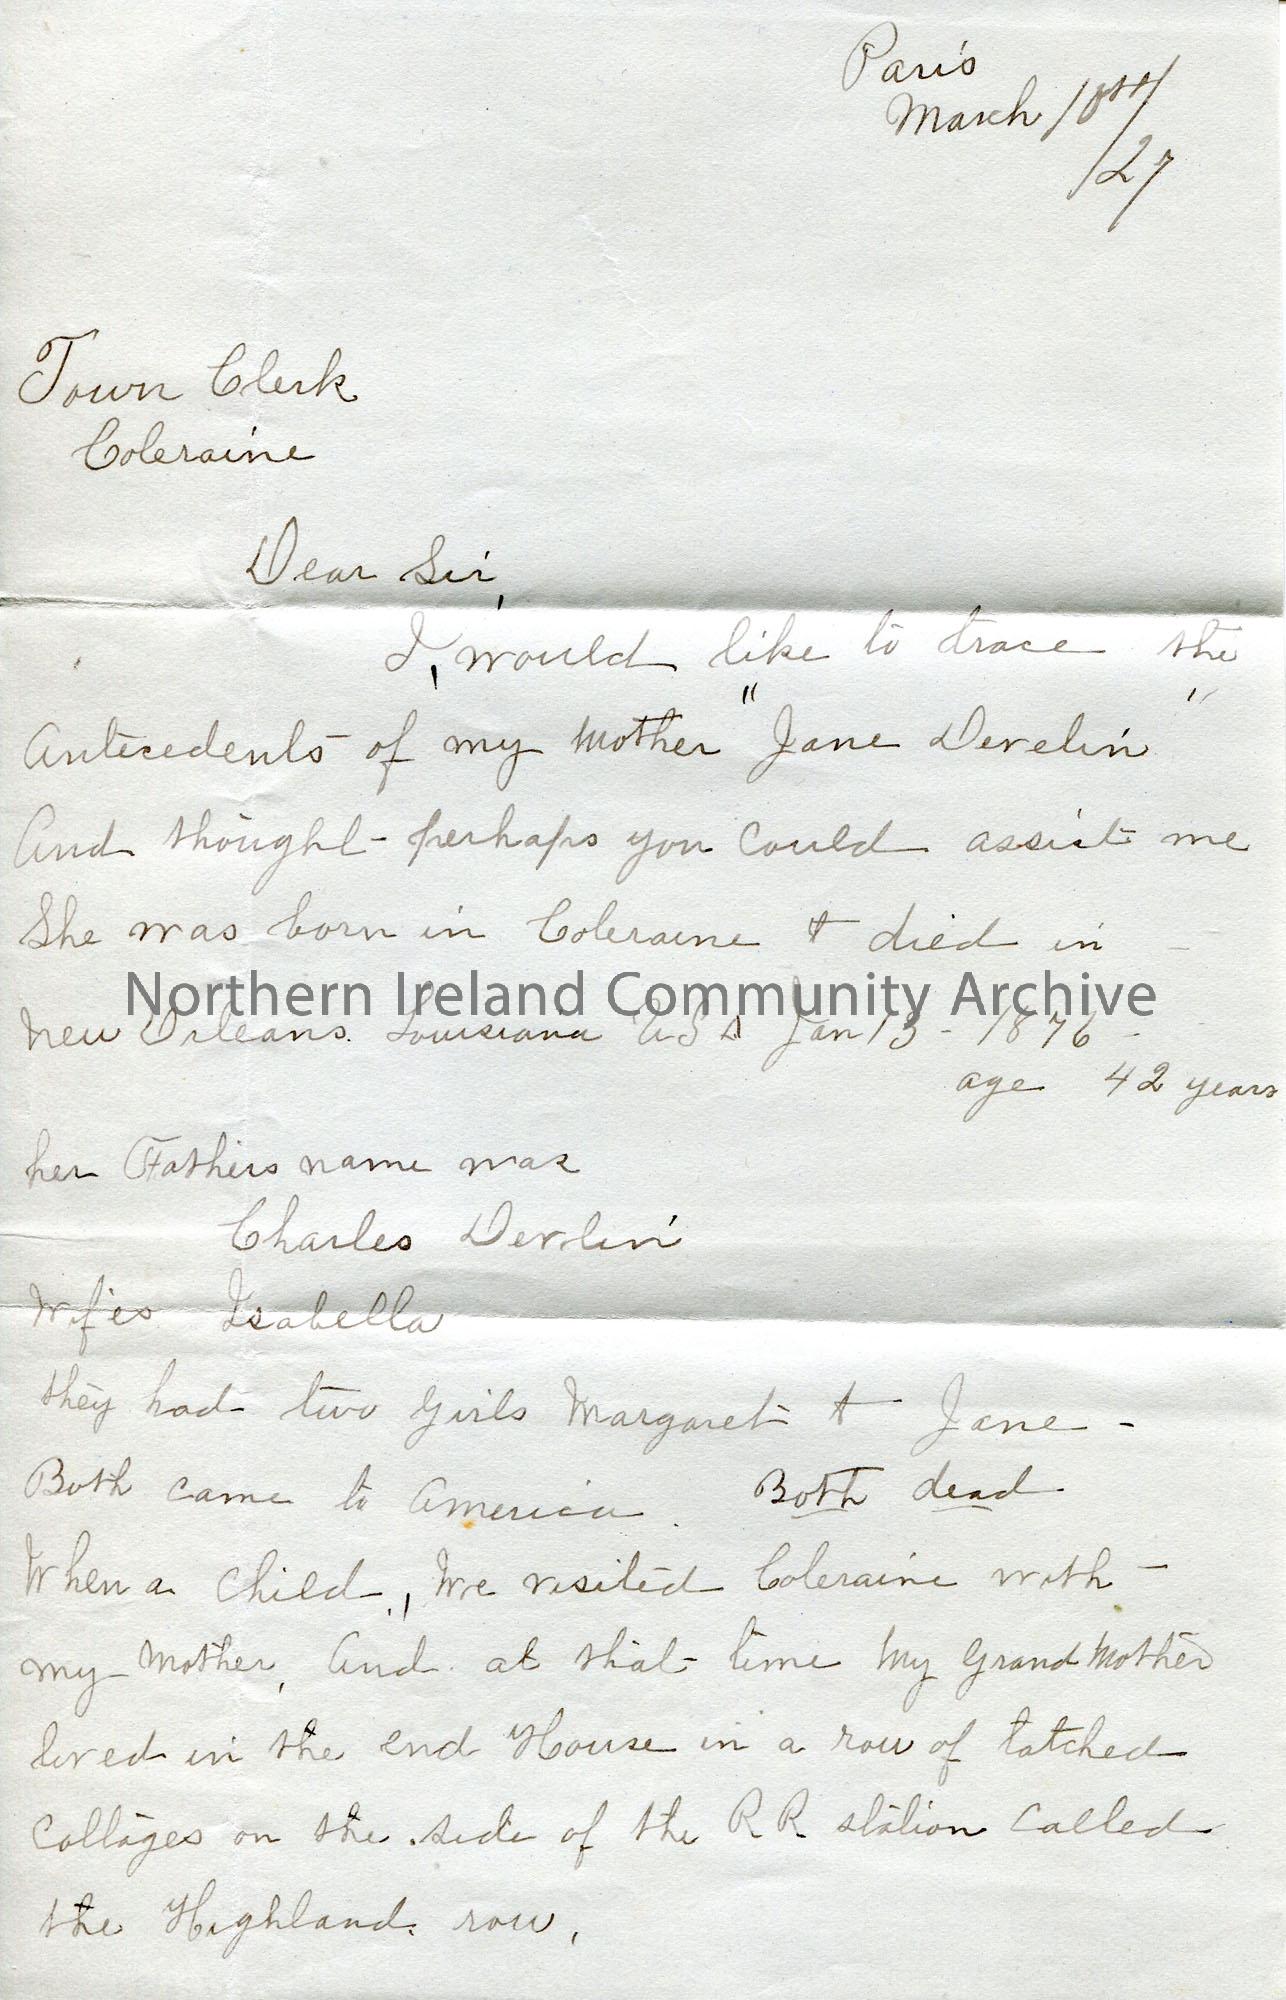 Paris
March 18th/
/27
Town Clerk
Coleraine
Dear Sir,
I, would like to trace the
Antecedents of my Mother "Jane Develin"
And thought perhaps you could assist me
She was born in Coleraine & died in -
Northern Ireland Community Archive
New Orleans. Louisiana USA Jan 13 - 1876 -
age 42 years
her Fathers name was
Charles Devlin
Wifes Isabella
they had two girls Margaret & Jane -
Both came to America. Both dead
When a child, We visited Coleraine with -
my Mother, And at that time My Grand Mother
lived in the end House in a row of tatched
Cottages on the side of the R.R. station called
the Highland row.